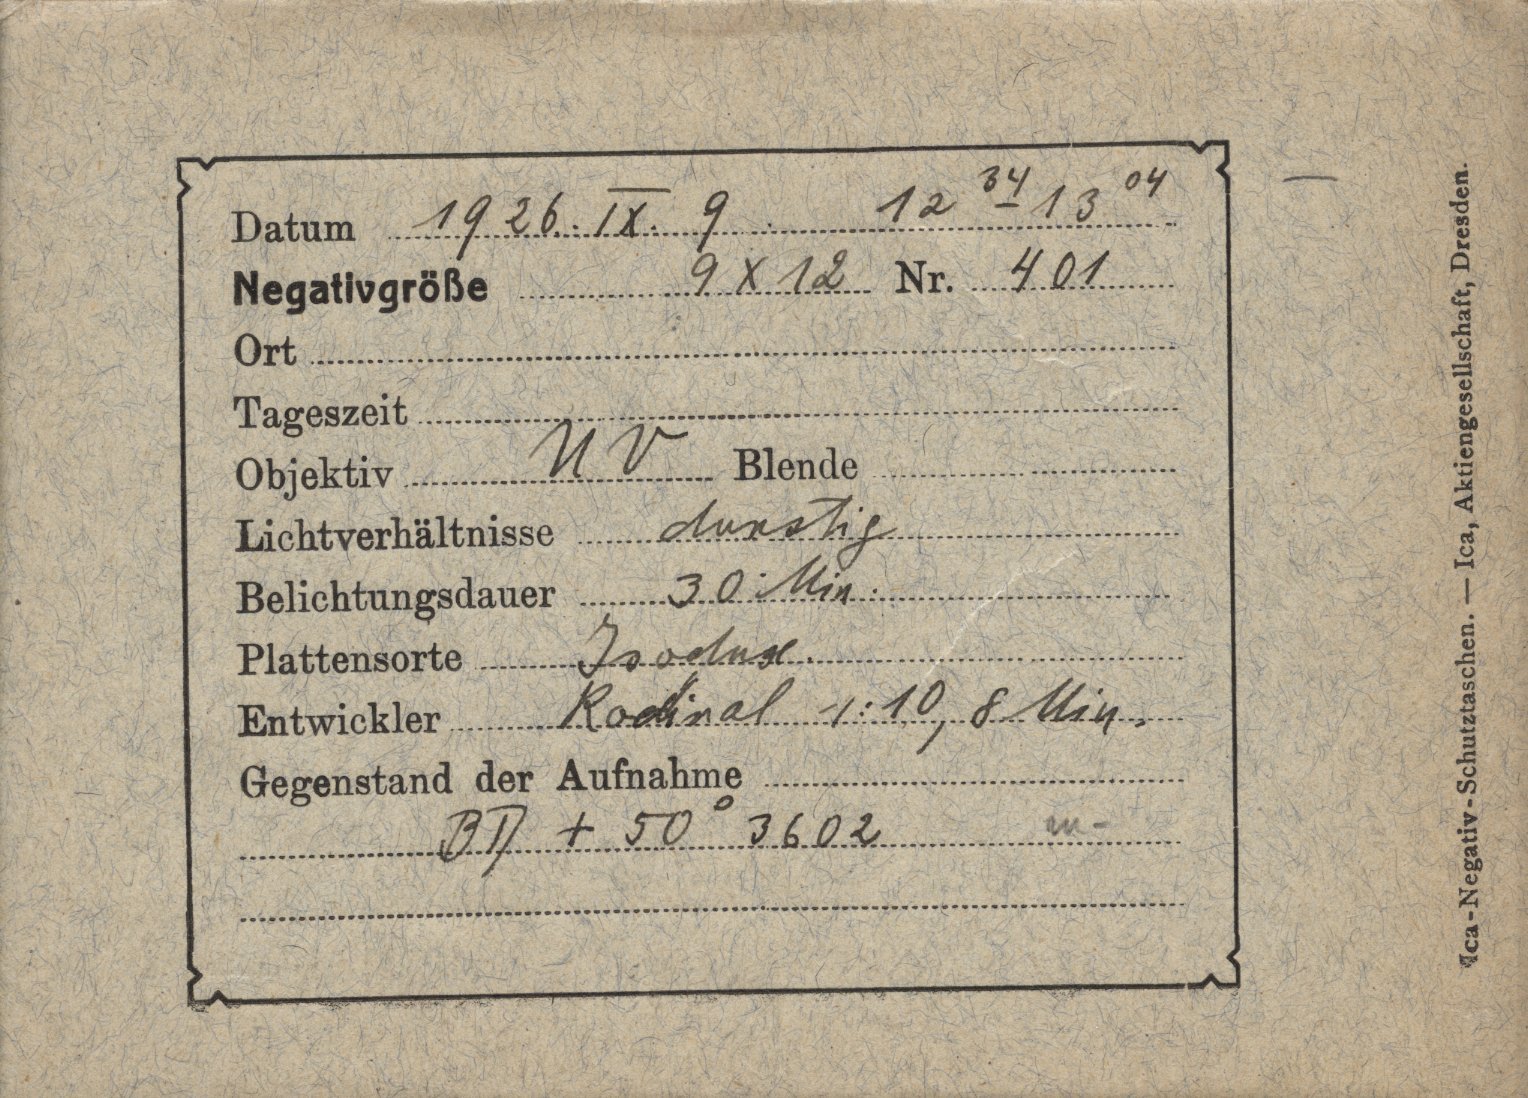 Datum 1926. IX. 9. 12 34 - 13 04
Negativgröße 9 X 12 Nr. 401
Ort
Tageszeit
Objektiv UV Blende
Lichtverhältnisse dunstig
Belichtungsdauer 30 Min.
Plattensorte Isodux.
Entwickler Rodinal 1:10, 8 Min.
Gegenstand der Aufnahme
BD + 50° 3602
Ica-Negativ-Schutztaschen. — Ica, Aktiengesellschaft, Dresden.